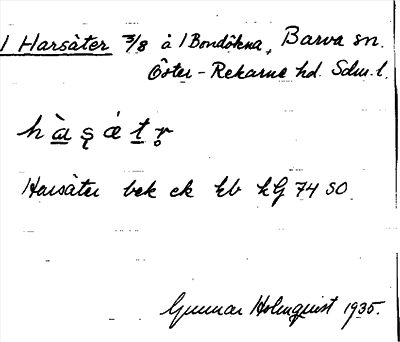 1 Harsäter 3/8 å 1 Bondökna, Barva sn.
Öster-Rekarne hd. Sdm. l.
hà̱ṣátr̥
Harsäter bek ek kb kG 74 SO.
Gunnar Holmquist 1935.